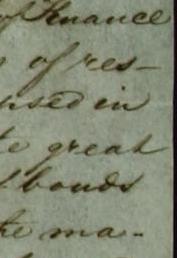 of Finance
of res-
used in
great
bonds
the ma-